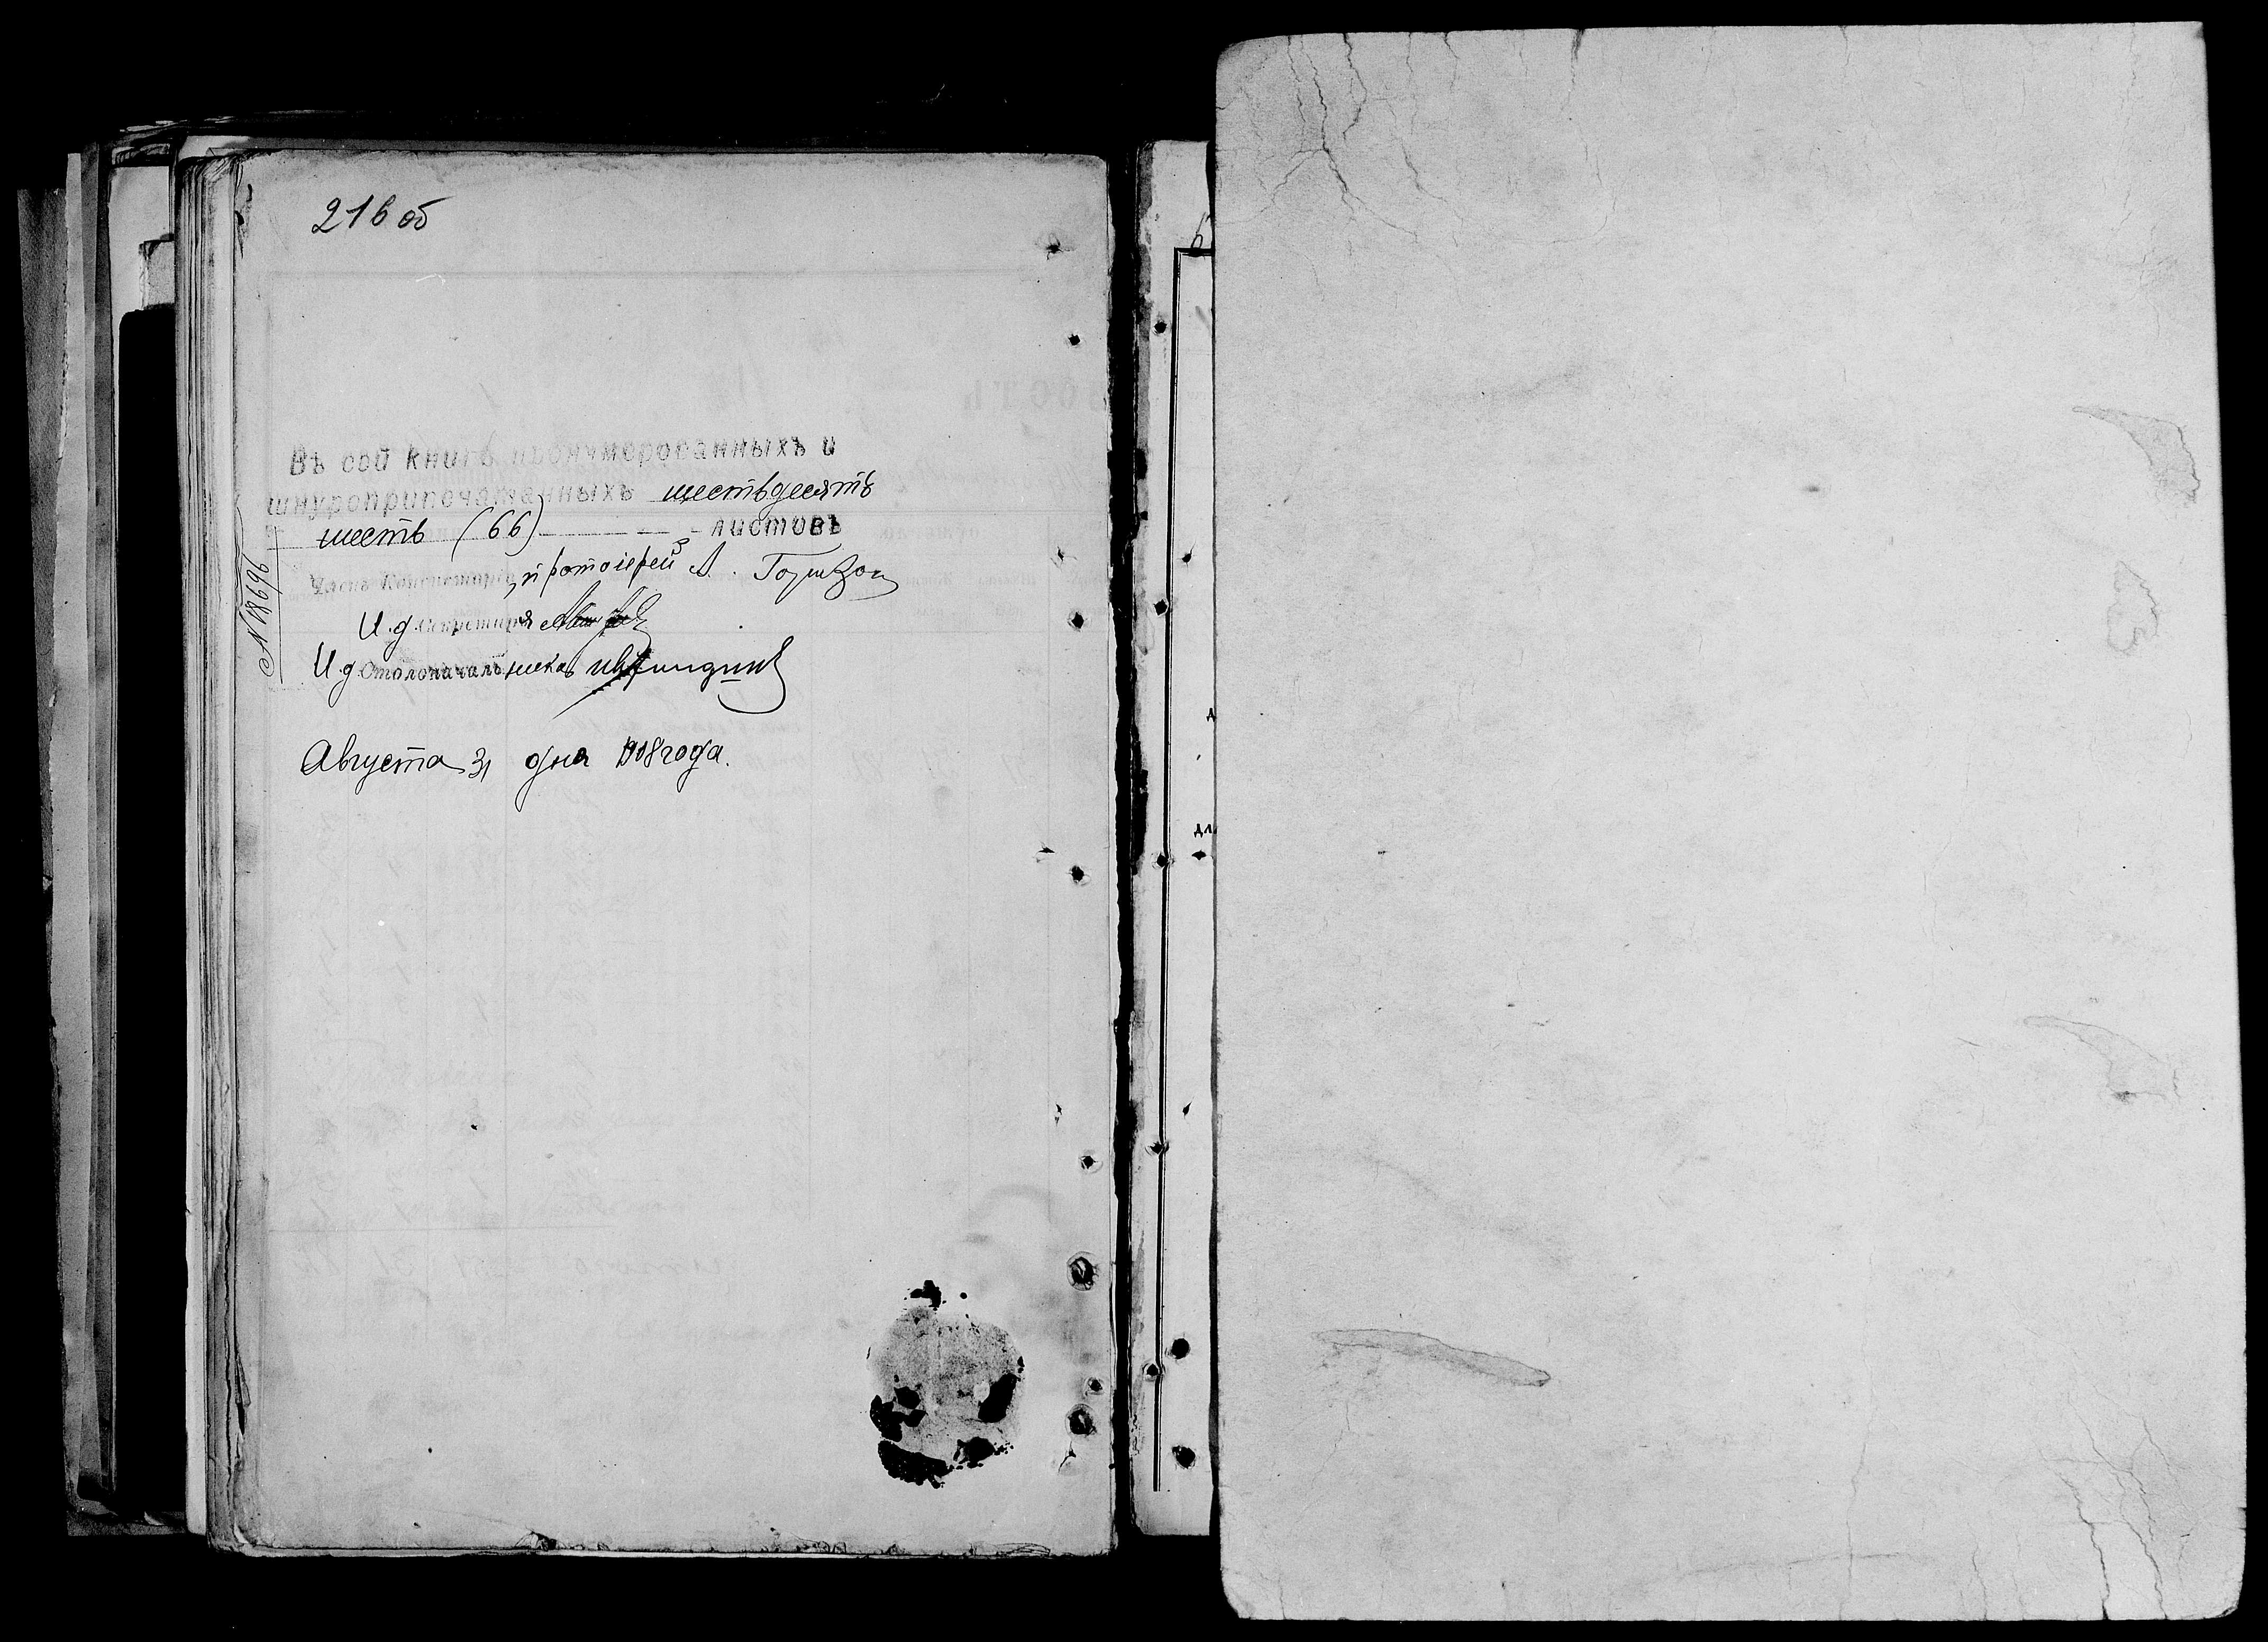 216 об
Въ сей книгѣ пронумерованныхъ и
шнуроприпечатанныхъ шестьдесятъ
шесть (66) листовъ
Членъ Консисторіи, протоіерей А.
И.д. Секретаря
И.д. Столоначальника
Августа 31 дня 1918 года.
N 18696